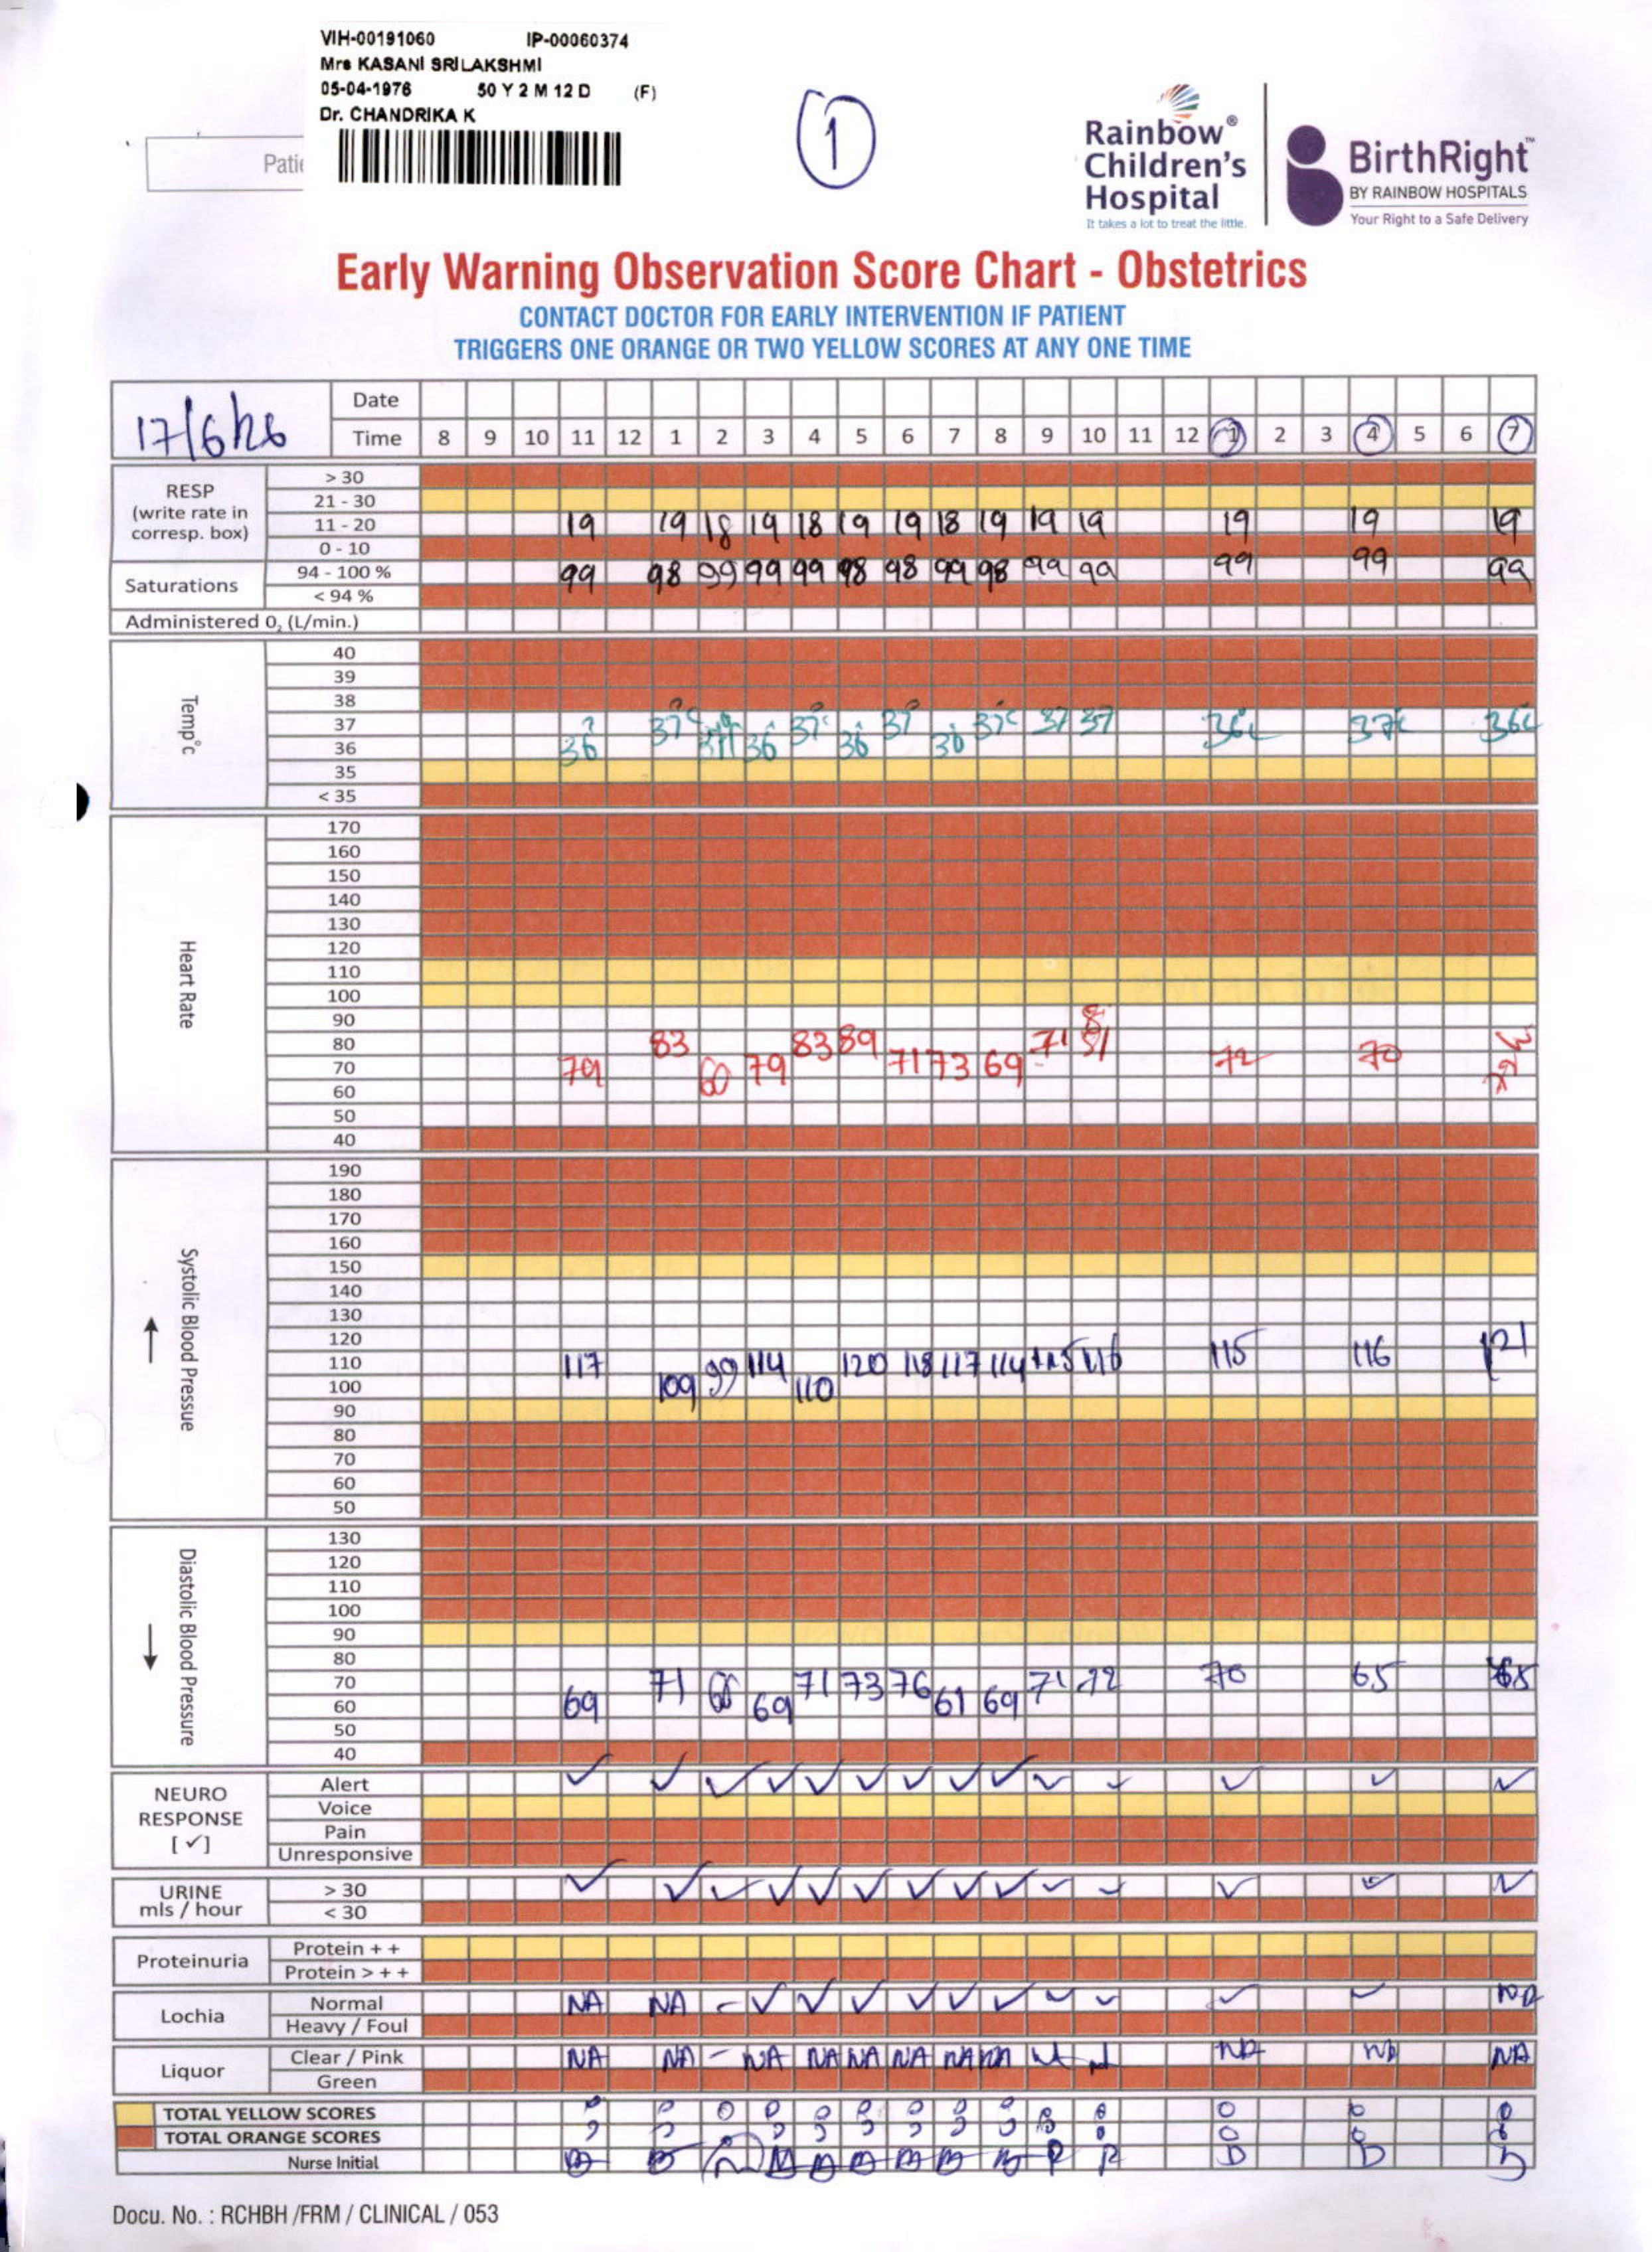 VIH-00191060 IP-00060374
Mrs KASANI SRILAKSHMI
05-04-1976 50 Y 2 M 12 D (F)
Dr. CHANDRIKA K
Patie
1
Rainbow®
Children's
Hospital
It takes a lot to treat the little.
BirthRight™
BY RAINBOW HOSPITALS
Your Right to a Safe Delivery
Early Warning Observation Score Chart - Obstetrics
CONTACT DOCTOR FOR EARLY INTERVENTION IF PATIENT
TRIGGERS ONE ORANGE OR TWO YELLOW SCORES AT ANY ONE TIME
17/6/26 Date
Time 8 9 10 11 12 1 2 3 4 5 6 7 8 9 10 11 12 1 2 3 4 5 6 7
RESP
(write rate in
corresp. box)
> 30
21 - 30
11 - 20 19 19 18 19 18 19 19 18 19 19 19 19 19 19
0 - 10
Saturations
94 - 100 % 99 98 99 99 99 98 98 99 98 99 99 99 99 99
< 94 %
Administered 0₂ (L/min.)
Temp°c
40
39
38
37 37 37 37 37 37 37 37
36 36 36 36 36 36 36
35
< 35
Heart Rate
170
160
150
140
130
120
110
100
90
80 83 83 89 71 81
70 79 60 79 71 73 69 72 70
60
50
40
Systolic Blood Pressue
190
180
170
160
150
140
130
120
110 117 99 114 120 118 117 114 115 116 115 116 121
100 109 110
90
80
70
60
50
Diastolic Blood Pressure
130
120
110
100
90
80
70 71 66 71 73 76 71 72 70 65 65
60 69 69 61 69
50
40
NEURO
RESPONSE
[ ✓ ]
Alert ✓ ✓ ✓ ✓ ✓ ✓ ✓ ✓ ✓ ✓ ✓ ✓ ✓ ✓
Voice
Pain
Unresponsive
URINE
mls / hour
> 30 ✓ ✓ ✓ ✓ ✓ ✓ ✓ ✓ ✓ ✓ ✓ ✓ ✓ ✓
< 30
Proteinuria
Protein + +
Protein > + +
Lochia
Normal NA NA - ✓ ✓ ✓ ✓ ✓ ✓ ✓ ✓ ✓ ✓ NA
Heavy / Foul
Liquor
Clear / Pink NA NA - NA NA NA NA NA NA NA NA NA
Green
TOTAL YELLOW SCORES 0 0 0 0 0 0 0 0 0 0 0 0 0 0
TOTAL ORANGE SCORES
Nurse Initial
Docu. No. : RCHBH /FRM / CLINICAL / 053